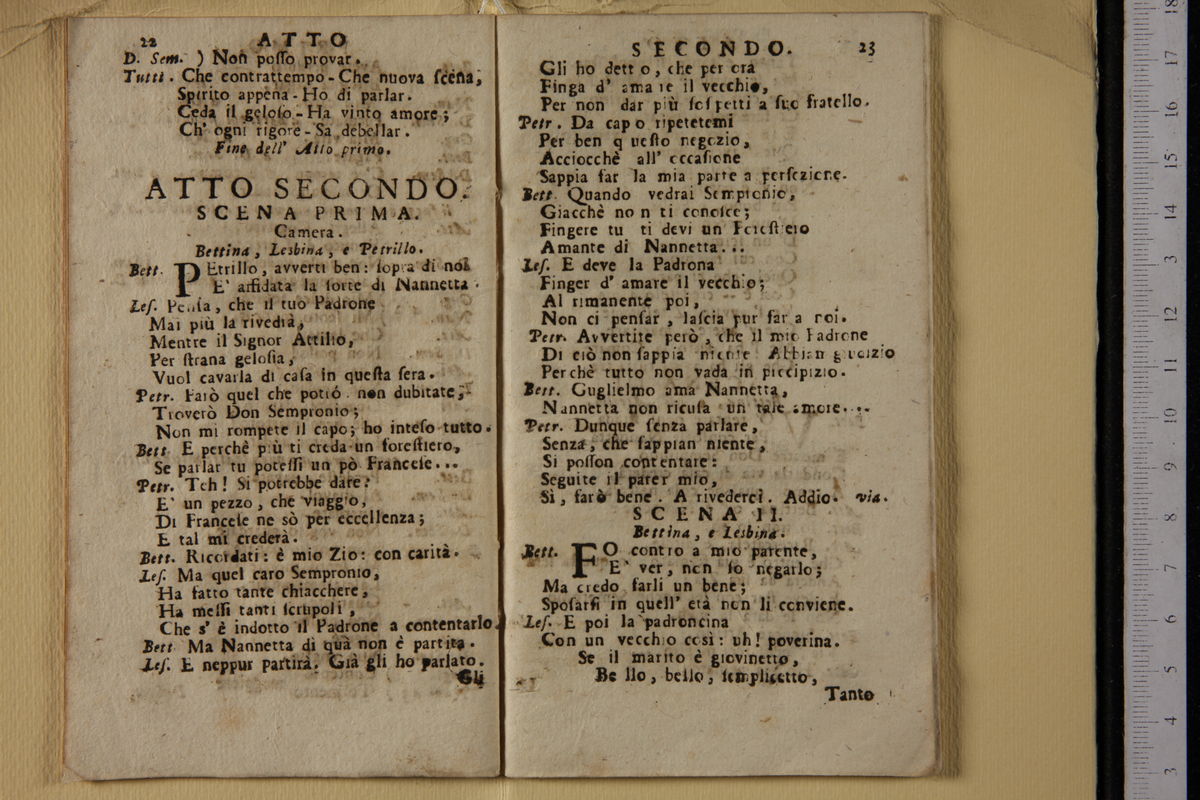 22 ATTO
D. Sem. ) Non poſſo provar.
Tutti. Che contrattempo - Che nuova ſcena,
Spirito appena - Ho di parlar.
Ceda il geloſo - Ha vinto amore;
Ch' ogni rigore - Sa debellar.
Fine dell' Atto primo.
ATTO SECONDO.
SCENA PRIMA.
Camera.
Bettina, Lesbina, e Petrillo.
Bett. PEtrillo, avverti ben: ſopra di noi
E' affidata la ſorte di Nannetta.
Leſ. Penſa, che il tuo Padrone
Mai più la rivedia,
Mentre il Signor Attilio,
Per ſtrana geloſia,
Vuol cavarla di caſa in queſta ſera.
Petr. Farò quel che potrò. non dubitate;
Troverò Don Sempronio;
Non mi rompete il capo; ho inteſo tutto.
Bett E perchè più ti creda un foreſtiero,
Se parlar tu poteſſi un pò Franceſe...
Petr. Teh! Si potrebbe dare?
E' un pezzo, che viaggio,
Di Franceſe ne sò per eccellenza;
E tal mi crederà.
Bett. Ricordati: è mio Zio: con carità.
Leſ. Ma quel caro Sempronio,
Ha fatto tante chiacchere,
Ha meſſi tanti ſcrupoli,
Che s' è indotto il Padrone a contentarlo.
Bett Ma Nannetta di quà non è partita.
Leſ. E neppur partirà. Già gli ho parlato.
Gli
SECONDO. 23
Gli ho detto, che per ora
Finga d' amare il vecchio,
Per non dar più ſoſpetti a ſuo fratello.
Petr. Da capo ripetetemi
Per ben queſto negozio,
Acciocchè all' occaſione
Sappia far la mia parte a perfezione.
Bett. Quando vedrai Sempronio,
Giacchè non ti conoſce;
Fingere tu ti devi un Foreſtiero
Amante di Nannetta...
Leſ. E deve la Padrona
Finger d' amare il vecchio;
Al rimanente poi,
Non ci penſar, laſcia pur far a noi.
Petr. Avvertite però, che il mio Padrone
Di ciò non ſappia niente. Abbian giudizio
Perchè tutto non vada in piccipizio.
Bett. Guglielmo ama Nannetta,
Nannetta non ricuſa un tale amore...
Petr. Dunque ſenza parlare,
Senza, che ſappian niente,
Si poſſon contentare:
Seguite il parer mio,
Sì, farò bene. A rivederci. Addio. via.
SCENA II.
Bettina, e Lesbina.
Bett. FO contro a mio parente,
E' ver, non ſo negarlo;
Ma credo farli un bene;
Spoſarſi in quell' età non li conviene.
Leſ. E poi la padroncina
Con un vecchio così: uh! poverina.
Se il marito è giovinetto,
Bello, bello, ſemplicetto,
Tanto